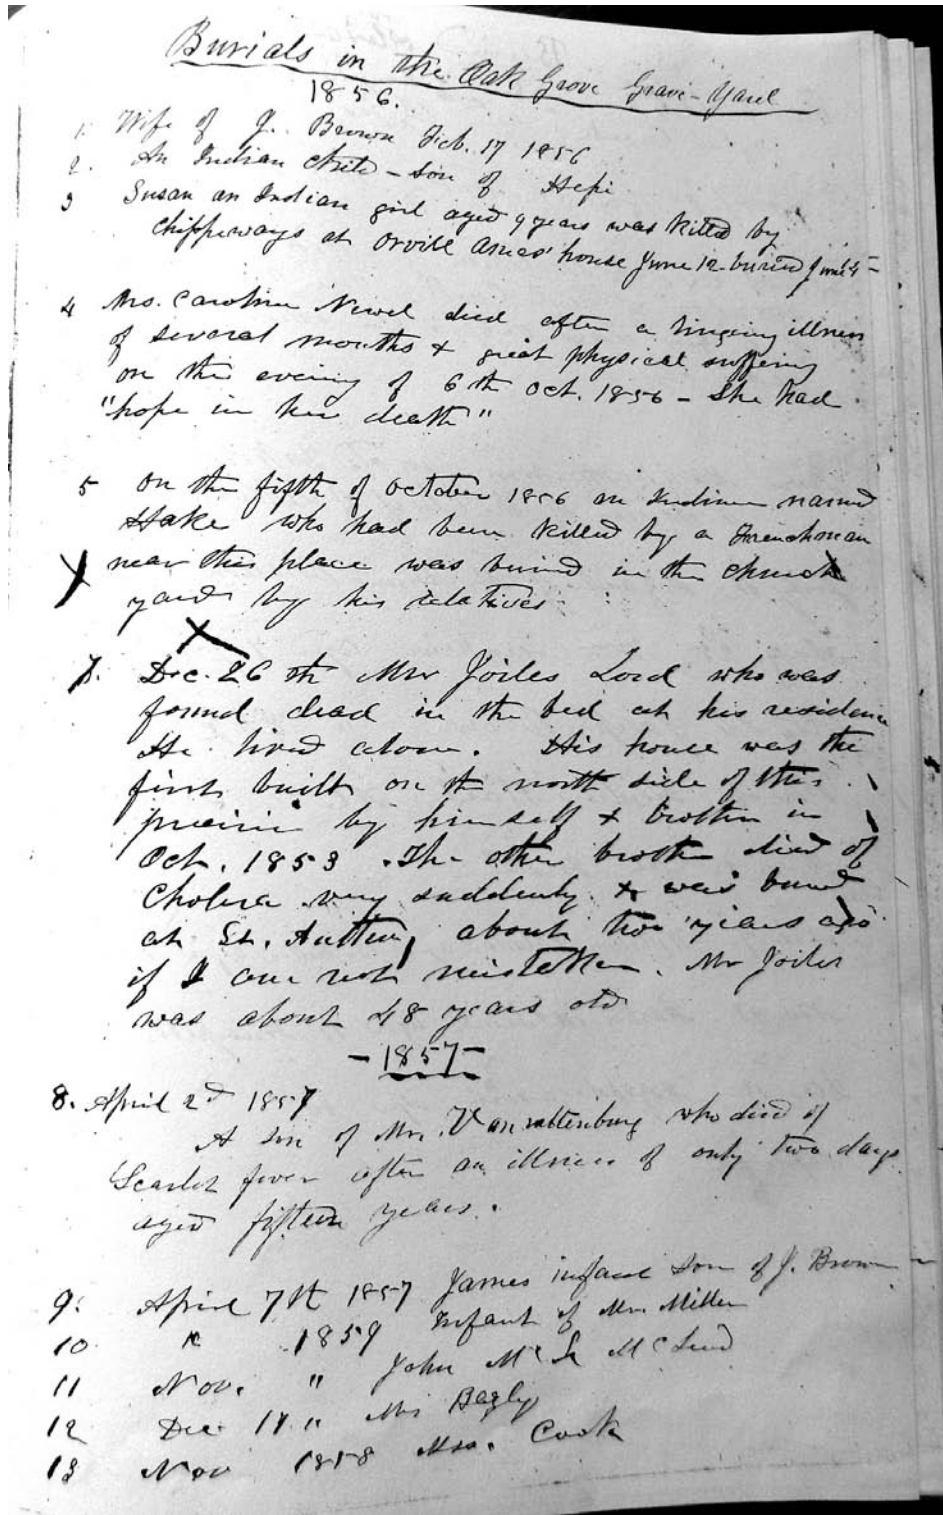 Burials in the Oak Grove Grave-Yard
1856.
1. Wife of J. Brown Feb. 17 1856
2. An Indian Child - son of Hepi
3 Susan an Indian girl aged 9 years was killed by
Chippeways at Orvill Ames' house June 12. buried June
4 Mrs. Caroline Newel died after a lingering illness
of several months & great physical suffering
on the evening of 6th Oct. 1856 - She had
"hope in her death"
5 On the fifth of October 1856 an Indian named
Hake who had been killed by a Frenchman
near this place was buried in the church
yard by his relatives
7. Dec. 26th Mr Joiles Lord who was
found dead in the bed at his residence
He lived alone. His house was the
first built on the north side of this
prairie by himself & brother in
Oct. 1853. The other brother died of
Cholera very suddenly & was buried
at St. about two years ago
if I am not mistaken. Mr Joiles
was about 48 years old
- 1857 -
8. April 2d 1857
A son of Mr. Vanvaltenburg who died of
Scarlet fever after an illness of only two days
aged fifteen years.
9. April 7th 1857 James infant son of J. Brown
10 " 1859 Infant of Mr. Miller
11 Nov. " John Mc
12 Dec 17 " Mrs Bagly
13 Nov 1858 Mrs. Cook